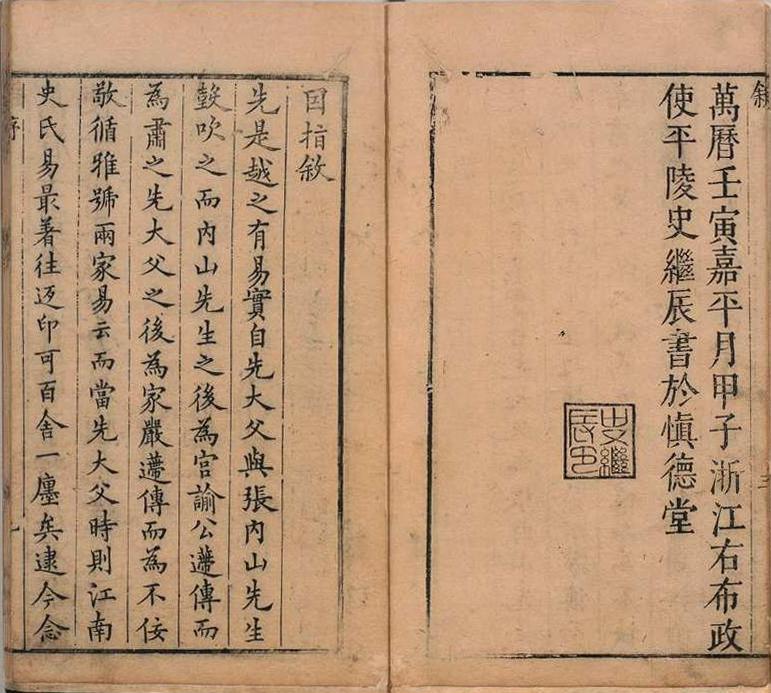 萬曆壬寅嘉平月甲子浙江右布政
使平陵史繼辰書於愼德堂
史繼辰印
因指敘
先是越之有易實自先大父與張內山先生
鼓吹之而內山先生之後為宮諭公遞傳而
為肅之先大父之後為家嚴遞傳而為不佞
敬循雅號兩家易云而當先大父時則江南
史氏易最著往返印可百舍一廛矣逮今念
序